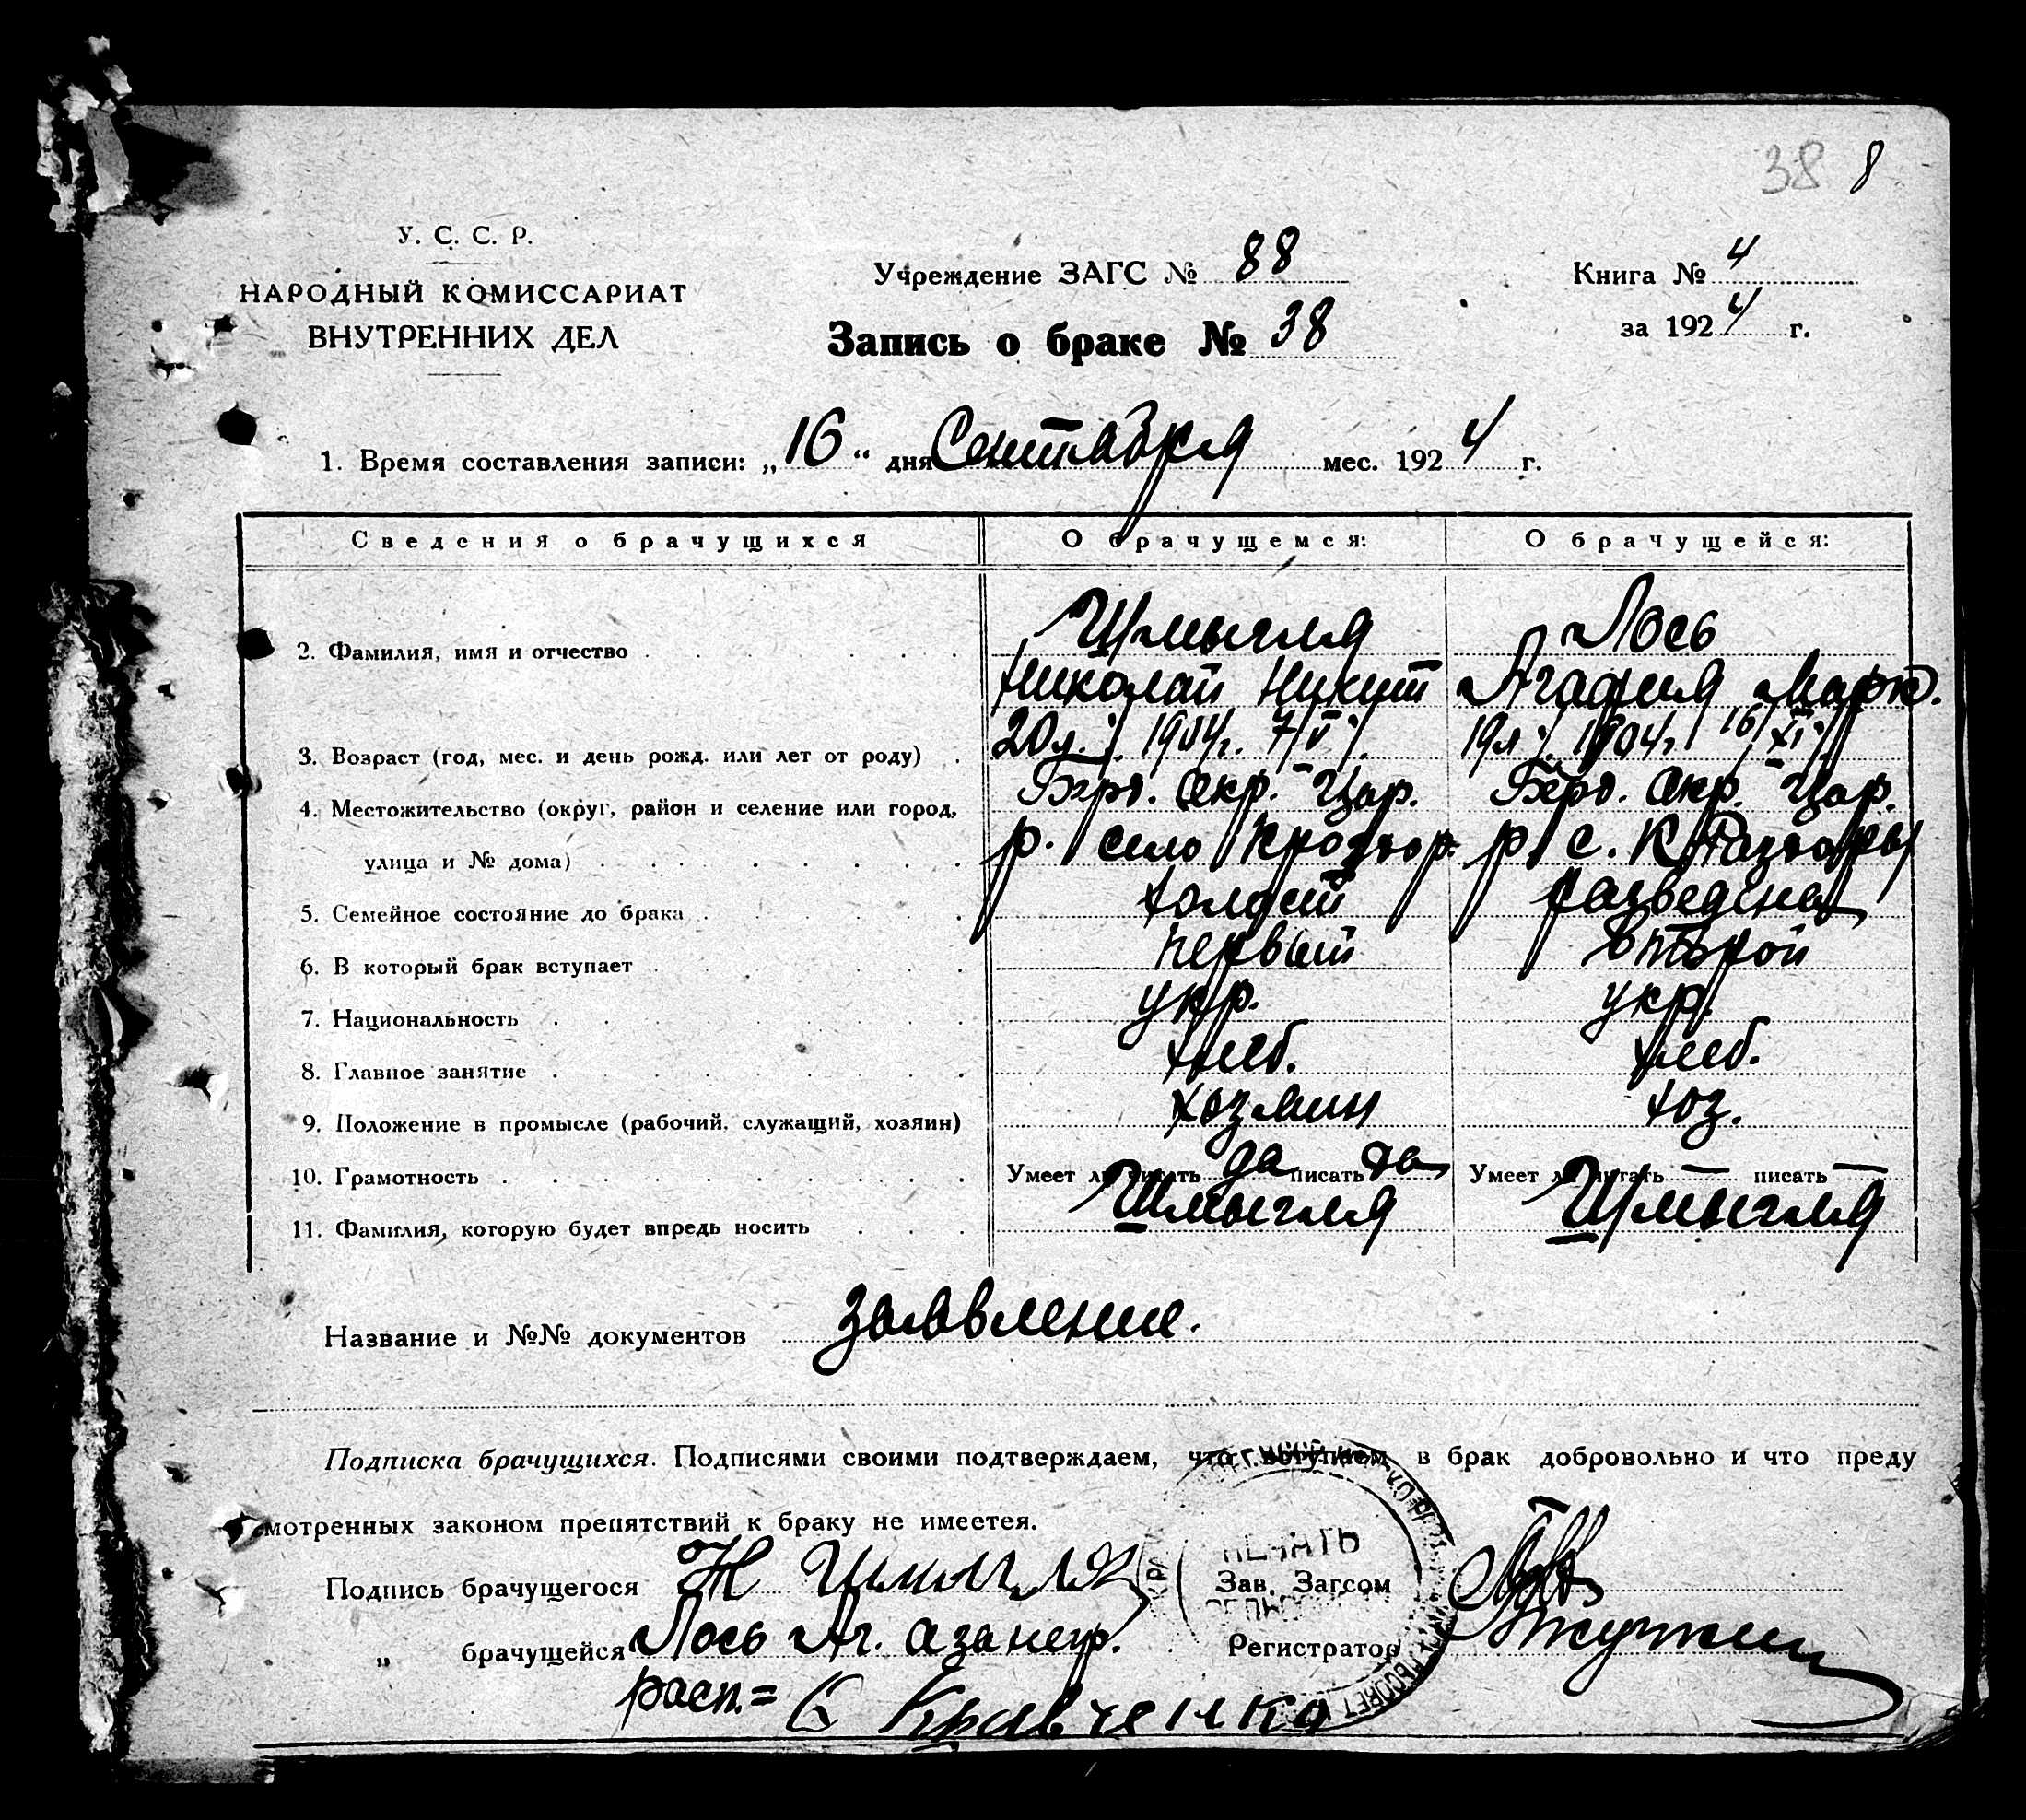 38 8
У. С. С. Р.
НАРОДНЫЙ КОМИССАРИАТ
ВНУТРЕННИХ ДЕЛ
Учреждение ЗАГС № 88
Запись о браке № 38
Книга № 4
за 1924 г.
1. Время составления записи: „16“ дня Сентября мес. 1924 г.
Сведения о брачущихся О брачущемся: О брачущейся:
Шмыгля Лось
2. Фамилия, имя и отчество
Николай Никит Агафия Марк.
3. Возраст (год, мес. и день рожд. или лет от роду) 20 л. 1904 г. 7/V 19 л. 1904 г. 16/XI
4. Местожительство (округ, район и селение или город, Окр. Цар. Окр. Цар.
улица и № дома) р. село р. с. К Разъоры
5. Семейное состояние до брака холост разведена
6. В который брак вступает первый второй
7. Национальность укр. укр.
8. Главное занятие хлеб. хлеб.
9. Положение в промысле (рабочий, служащий, хозяин) хозяин хоз.
10. Грамотность Умеет ли читать да писать да Умеет ли читать — писать —
11. Фамилия, которую будет впредь носить Шмыгля Шмыгля
Название и №№ документов заявление.
Подписка брачущихся. Подписями своими подтверждаем, что вступаем в брак добровольно и что преду
смотренных законом препятствий к браку не имеется.
Подпись брачущегося Н Шмигля
ПЕЧАТЬ
Зав. Загсом
„ брачущейся Лось Аг. а за негр. Регистратор
расп.= С Кравченко